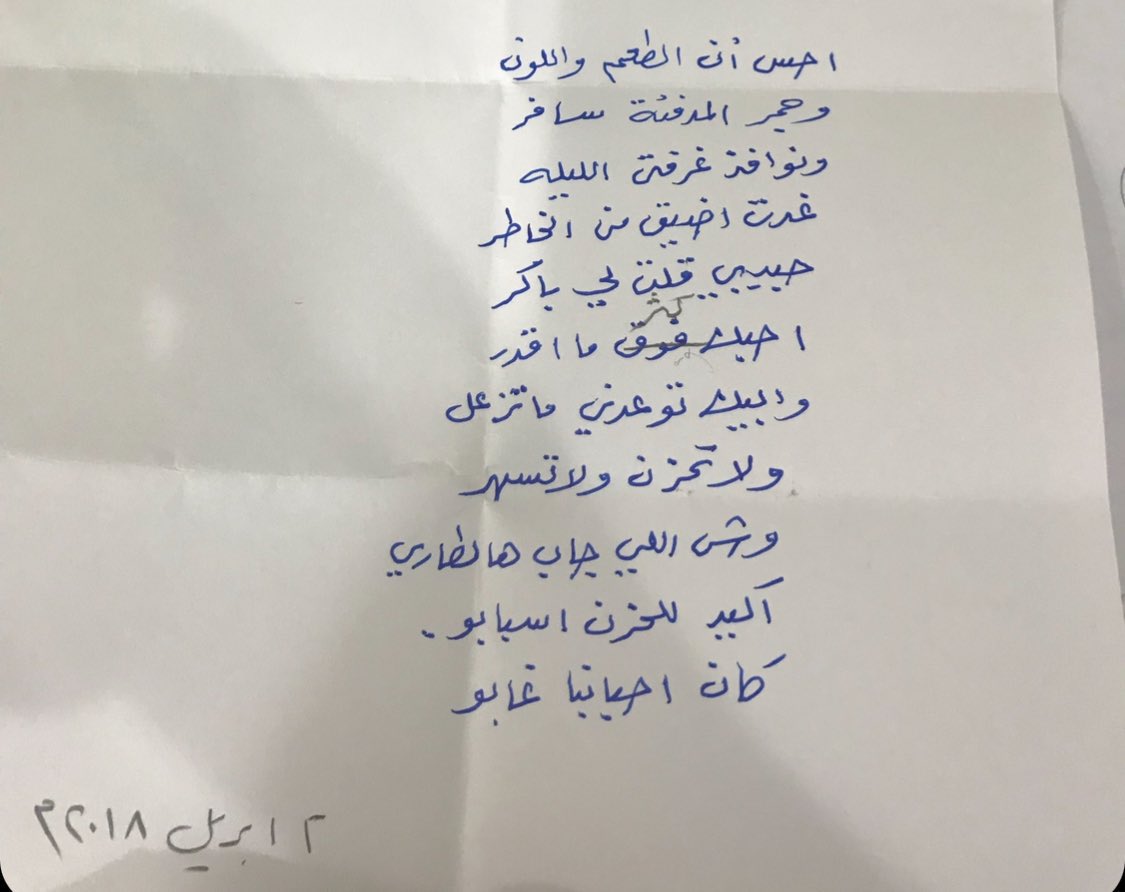 احس أن الطعم واللون
وجمر المدفئة سافر
ونوافذ غرفتي الليله
غدت اضيق من الخاطر
حبيبي قلت لي باكر
كثر
احبك فوق ما اقدر
وابيك توعدني ماتزعل
ولا تحزن ولا تسهر
وش اللي جاب هالطاري
أكيد للحزن اسبابو .
كان احبابنا غابو
٢ ابريل ٢٠١٨م